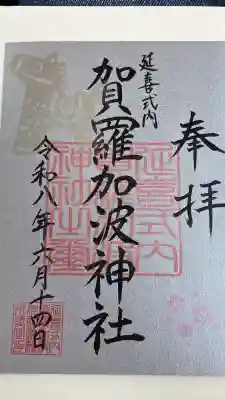 奉拝
延喜式内
賀羅加波神社
令和八年六月十四日
延喜式内